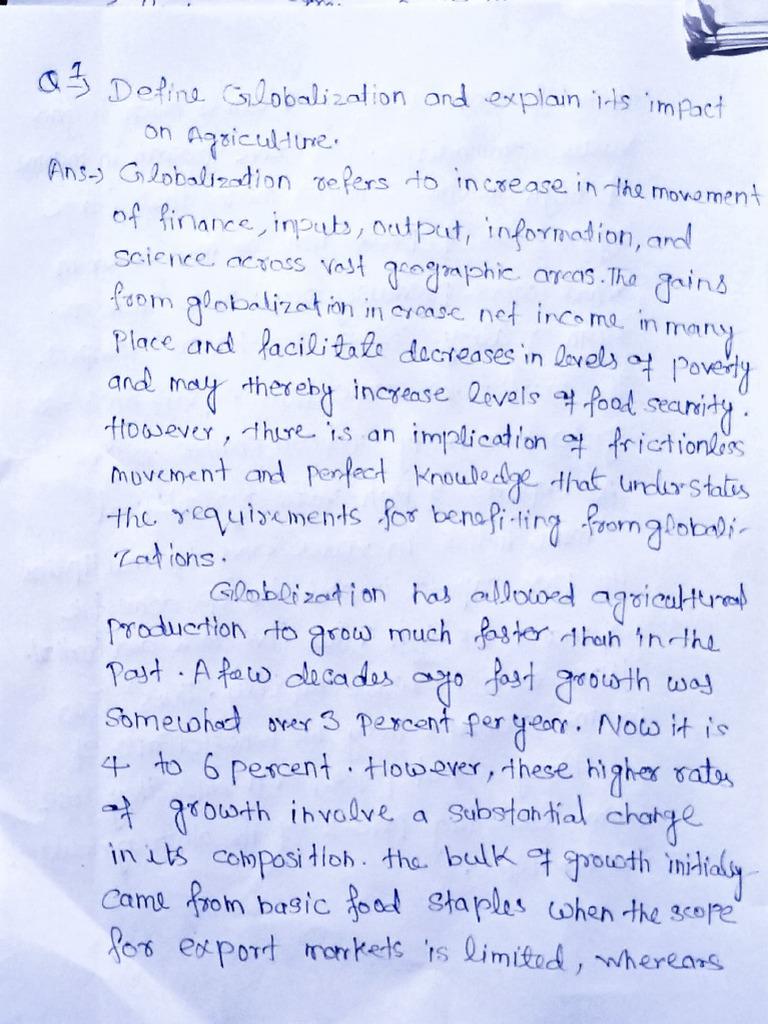 Q 1→ Define Globalization and explain its impact
on Agriculture.
Ans→ Globalization refers to increase in the movement
of finance, inputs, output, information, and
science across vast geographic areas. The gains
from globalization increase net income in many
Place and facilitate decreases in levels of poverty
and may thereby increase levels of food security.
However, there is an implication of frictionless
movement and perfect knowledge that understates
the requirements for benefiting from globali-
zations.
Globlization has allowed agricultural
production to grow much faster than in the
Past. A few decades ago fast growth was
somewhat over 3 percent per year. Now it is
4 to 6 percent. However, these higher rates
of growth involve a substantial change
in its composition. the bulk of growth initially
came from basic food staples when the scope
for export markets is limited, wherears